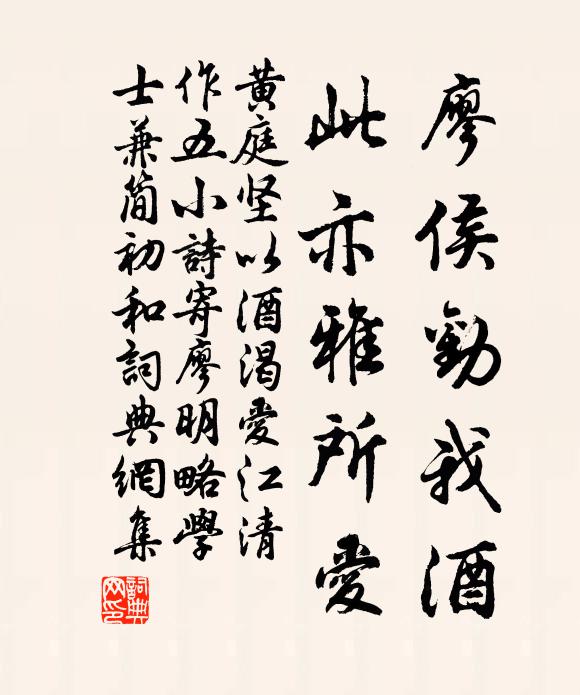 廖侯勸我酒
此亦雅所愛
黃庭坚以酒渴愛江清
作五小詩寄廖明略學
士兼簡初和詞典網集
詞典
网印